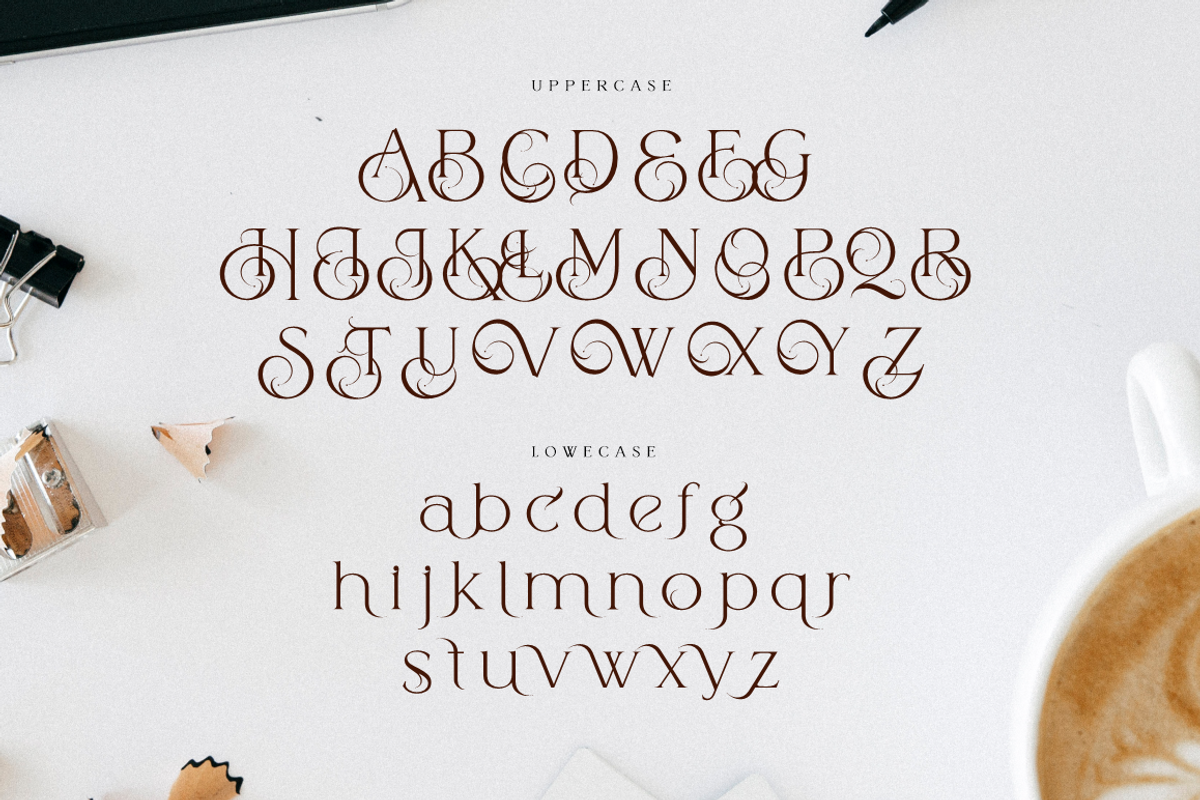 UPPERCASE
ABCDEFG
HIJKLMNOPQR
STUVWXYZ
LOWECASE
abcdefg
hijklmnopqr
stuvwxyz